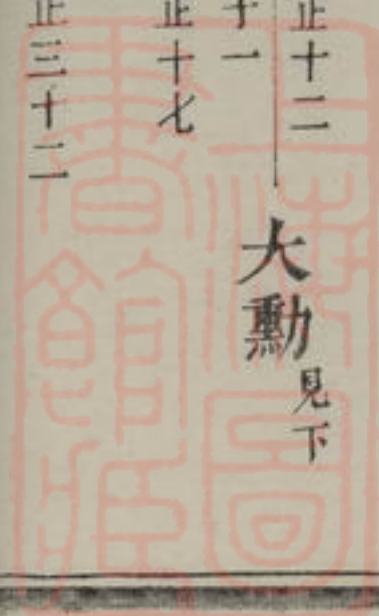 正十二
大勳見下
十一
正十七
正三十二